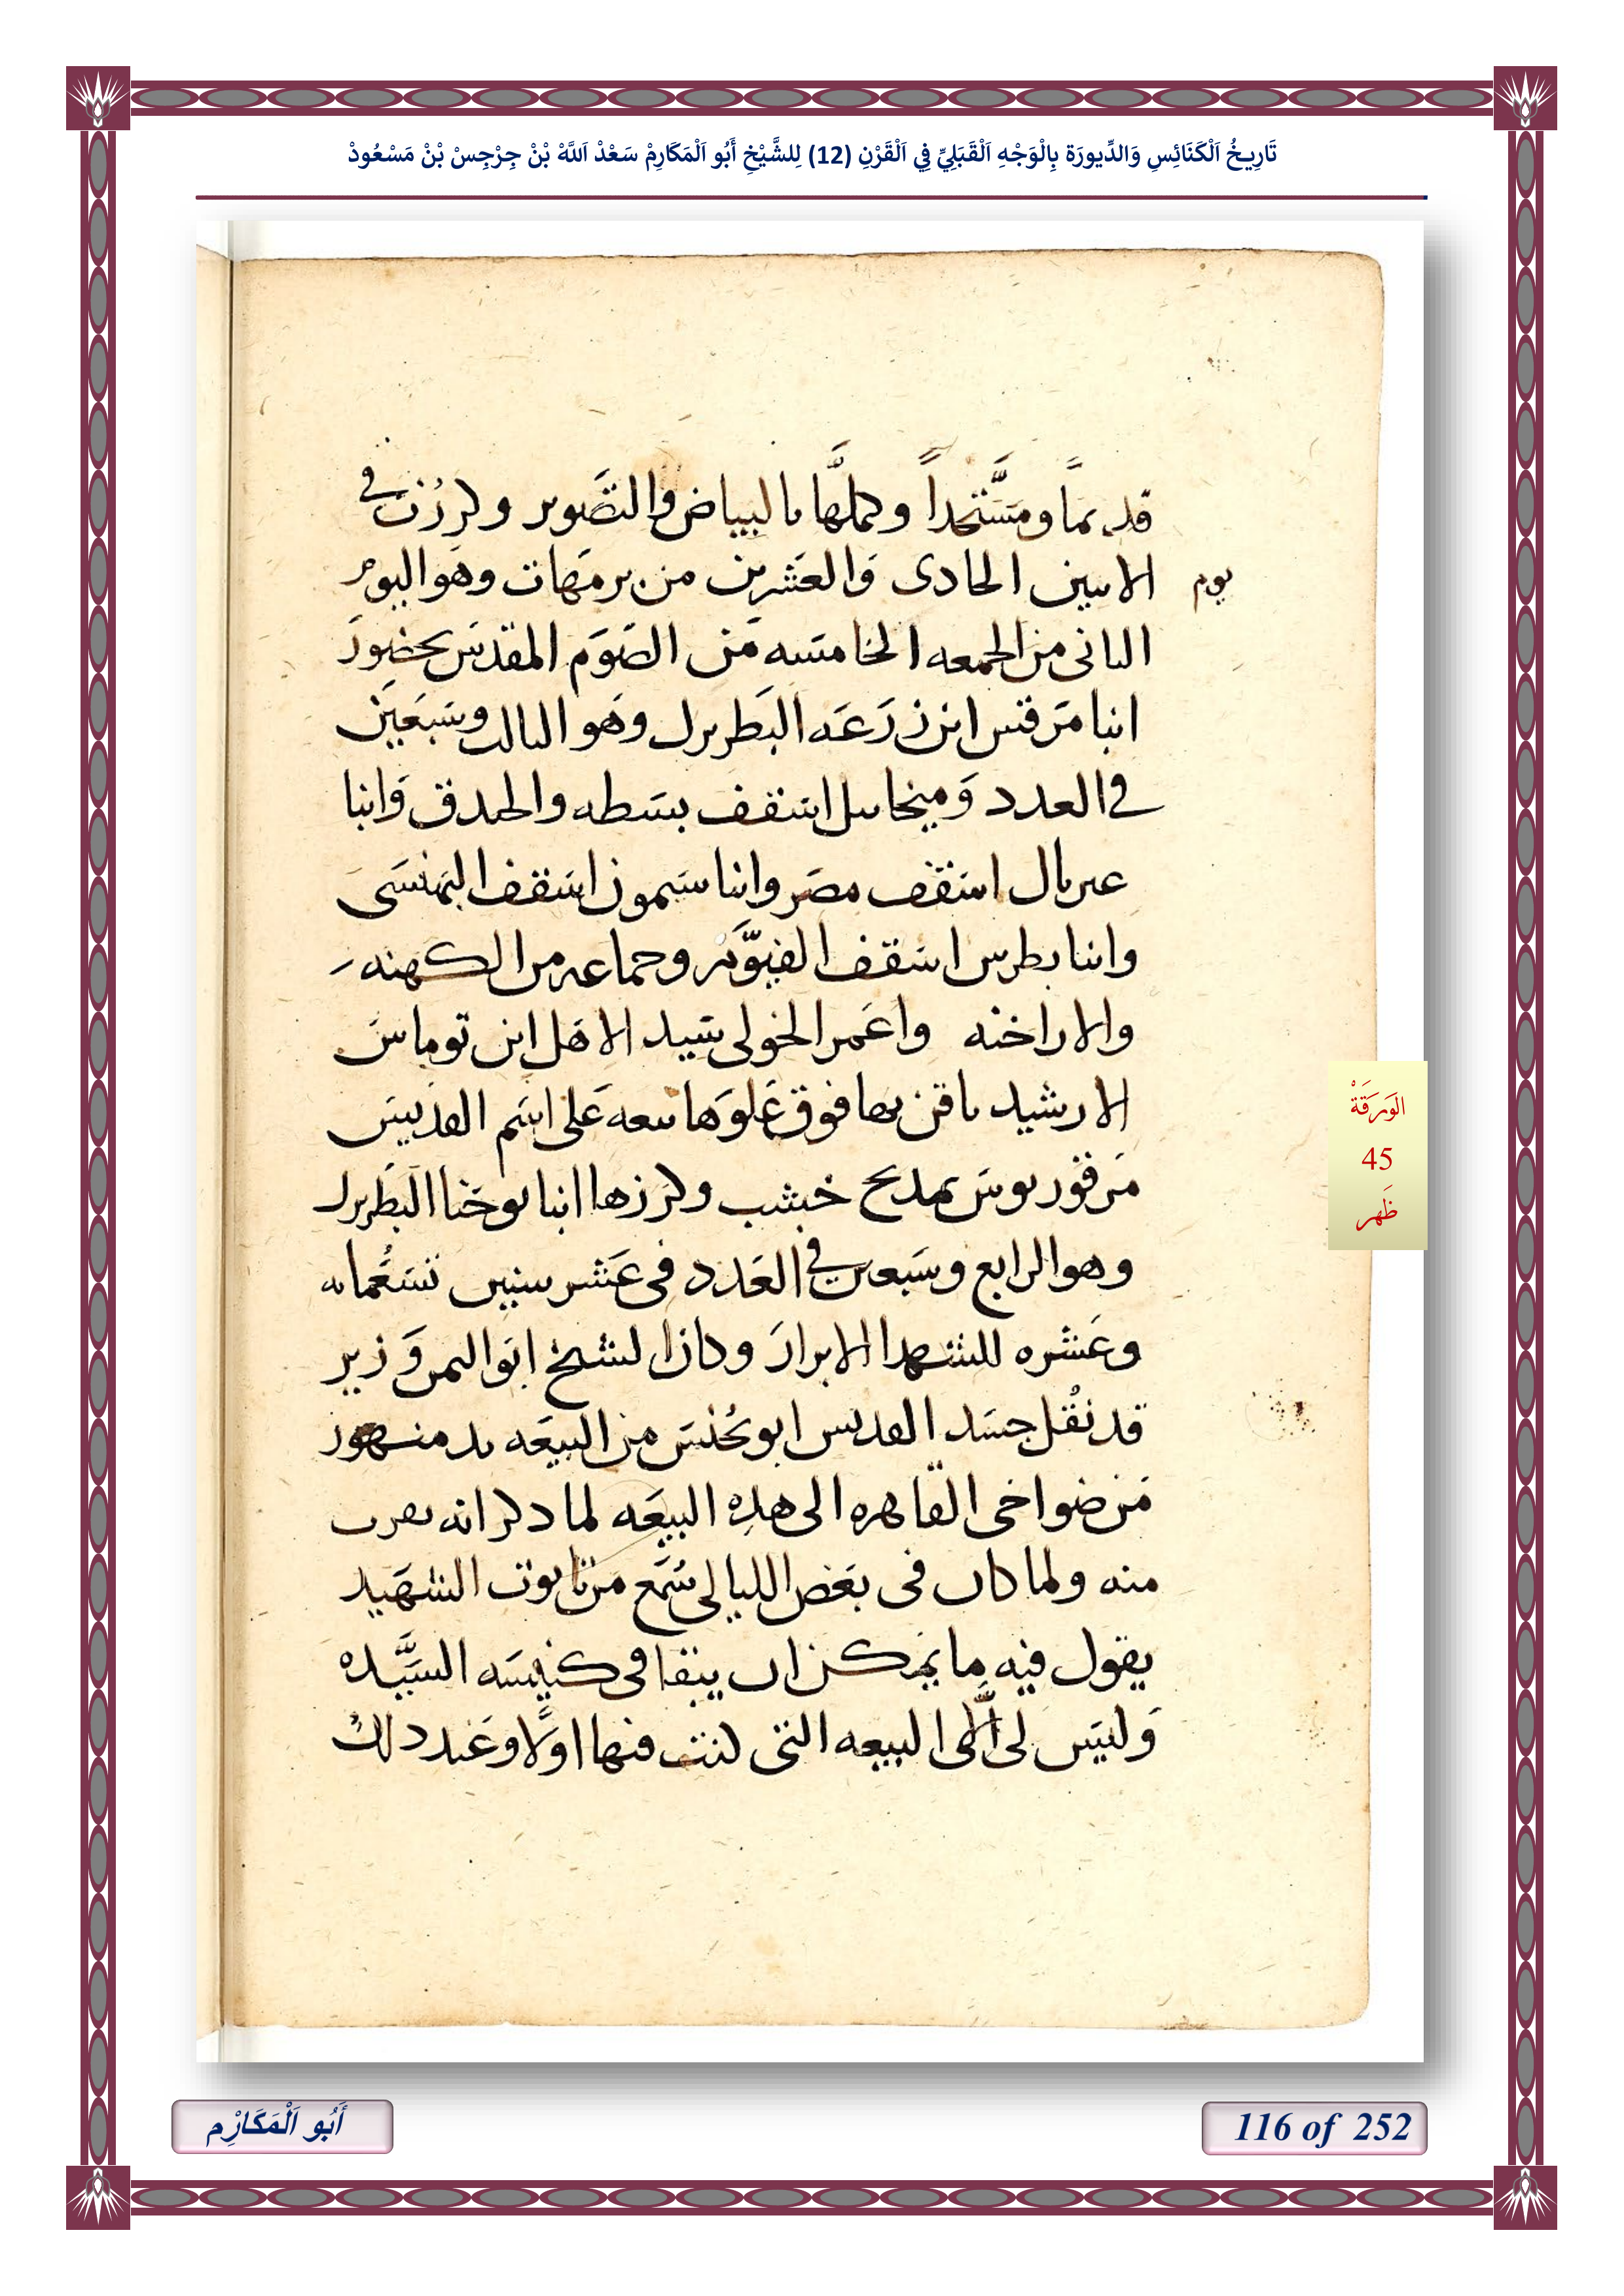 تَارِيخُ اَلْكَنَائِسِ وَالدِّيورَة بِالْوَجْهِ اَلْقَبَلِيِّ فِي اَلْقَرْنِ (12) لِلشَّيْخِ أَبُو اَلْمَكَارِمْ سَعْدْ اَللَّهْ بْنْ جِرْجِسْ بْنْ مَسْعُودْ
قديمًا ومستجداً وكملها بالبياض والتصوير وكرزت في
يوم الاثنين الحادى والعشرين من برمهات وهو اليوم
الثانى من الجمعه الخامسه من الصوم المقدس بحضور
انبا مرقس ابن زرعه البطريرك وهو الثالث وسبعين
في العدد وميخاييل اسقف بسطه والخندق وانبا
غبريال اسقف مصر وانبا سيمون اسقف البهنسى
وانبا بطرس اسقف الفيوم وجماعه من الكهنه
والاراخنه واعمر الخولى سيد الاهل ابن توماس
الارشيد ياقن بها فوق علوها بيعه على اسم القديس
مرقوريوس بمذبح خشب وكرزها انبا يوحنا البطريرك
وهو الرابع وسبعين في العدد فى عشر سنين تسعمايه
وعشره للشهدا الابرار وكان الشيخ ابو اليمن وزير
قد نقل جسد القديس ابو يحنس من البيعه بدمنهور
من ضواحى القاهره الى هذه البيعه لما ذكر انه بقرب
منه ولما كان فى بعض الليالى سمع من تابوت الشهيد
يقول فيه ما يمكن ان يبقا فى كنيسه السيده
وليس لى الا الى البيعه التى كنت فيها اولا وعند ذلك
الوَرَقَةْ
45
ظَهر
أَبُو اَلْمَكَارِْم
116 of 252